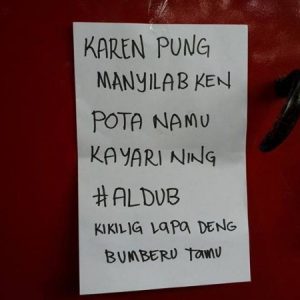 KAREN PUNG
MANYILAB KEN
POTA NAMU
KAYARI NING
#ALDUB
KIKILIG LAPA DENG
BUMBERU TAMU